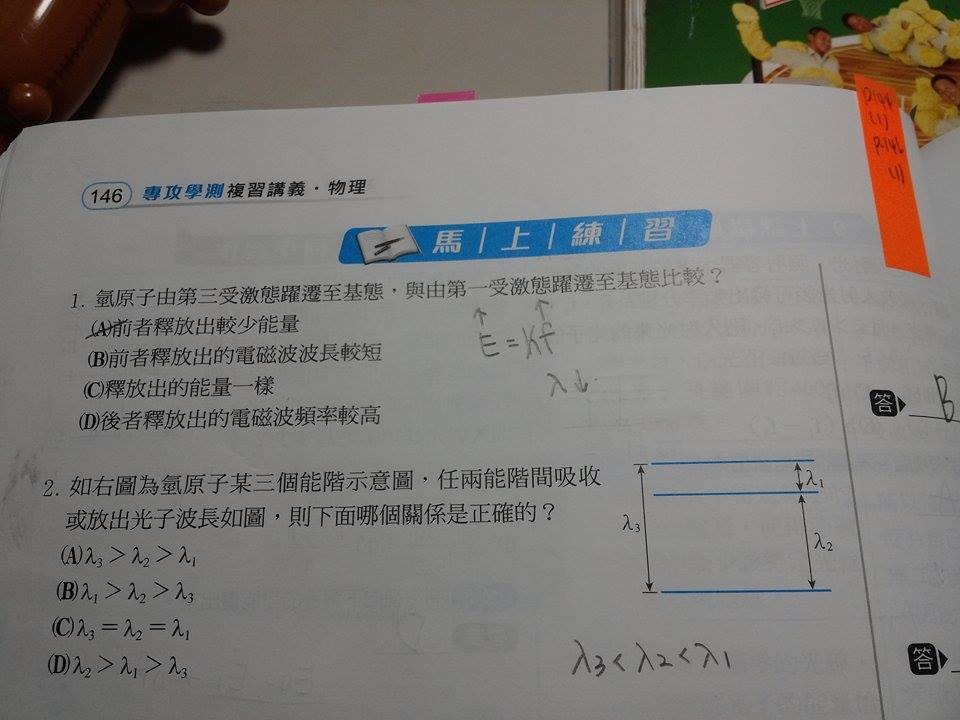 146 專攻學測 複習講義・物理
馬｜上｜練｜習
1. 氫原子由第三受激態躍遷至基態，與由第一受激態躍遷至基態比較？
(A)前者釋放出較少能量
(B)前者釋放出的電磁波波長較短
(C)釋放出的能量一樣
(D)後者釋放出的電磁波頻率較高
↑ ↑
E = hf
λ↓
答 B
2. 如右圖為氫原子某三個能階示意圖，任兩能階間吸收
或放出光子波長如圖，則下面哪個關係是正確的？
(A)λ₃ > λ₂ > λ₁
(B)λ₁ > λ₂ > λ₃
(C)λ₃ = λ₂ = λ₁
(D)λ₂ > λ₁ > λ₃
λ₁
λ₃
λ₂
λ3 < λ2 < λ1
答
(1)
P.146
(1)